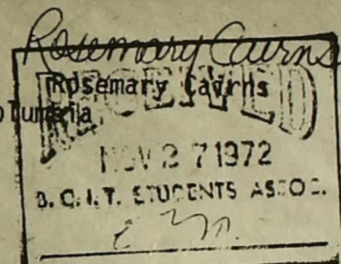 Rosemary Cairns
Rosemary Cairns
RECEIVED
NOV 27 1972
B.C.I.T. STUDENTS ASSOC.